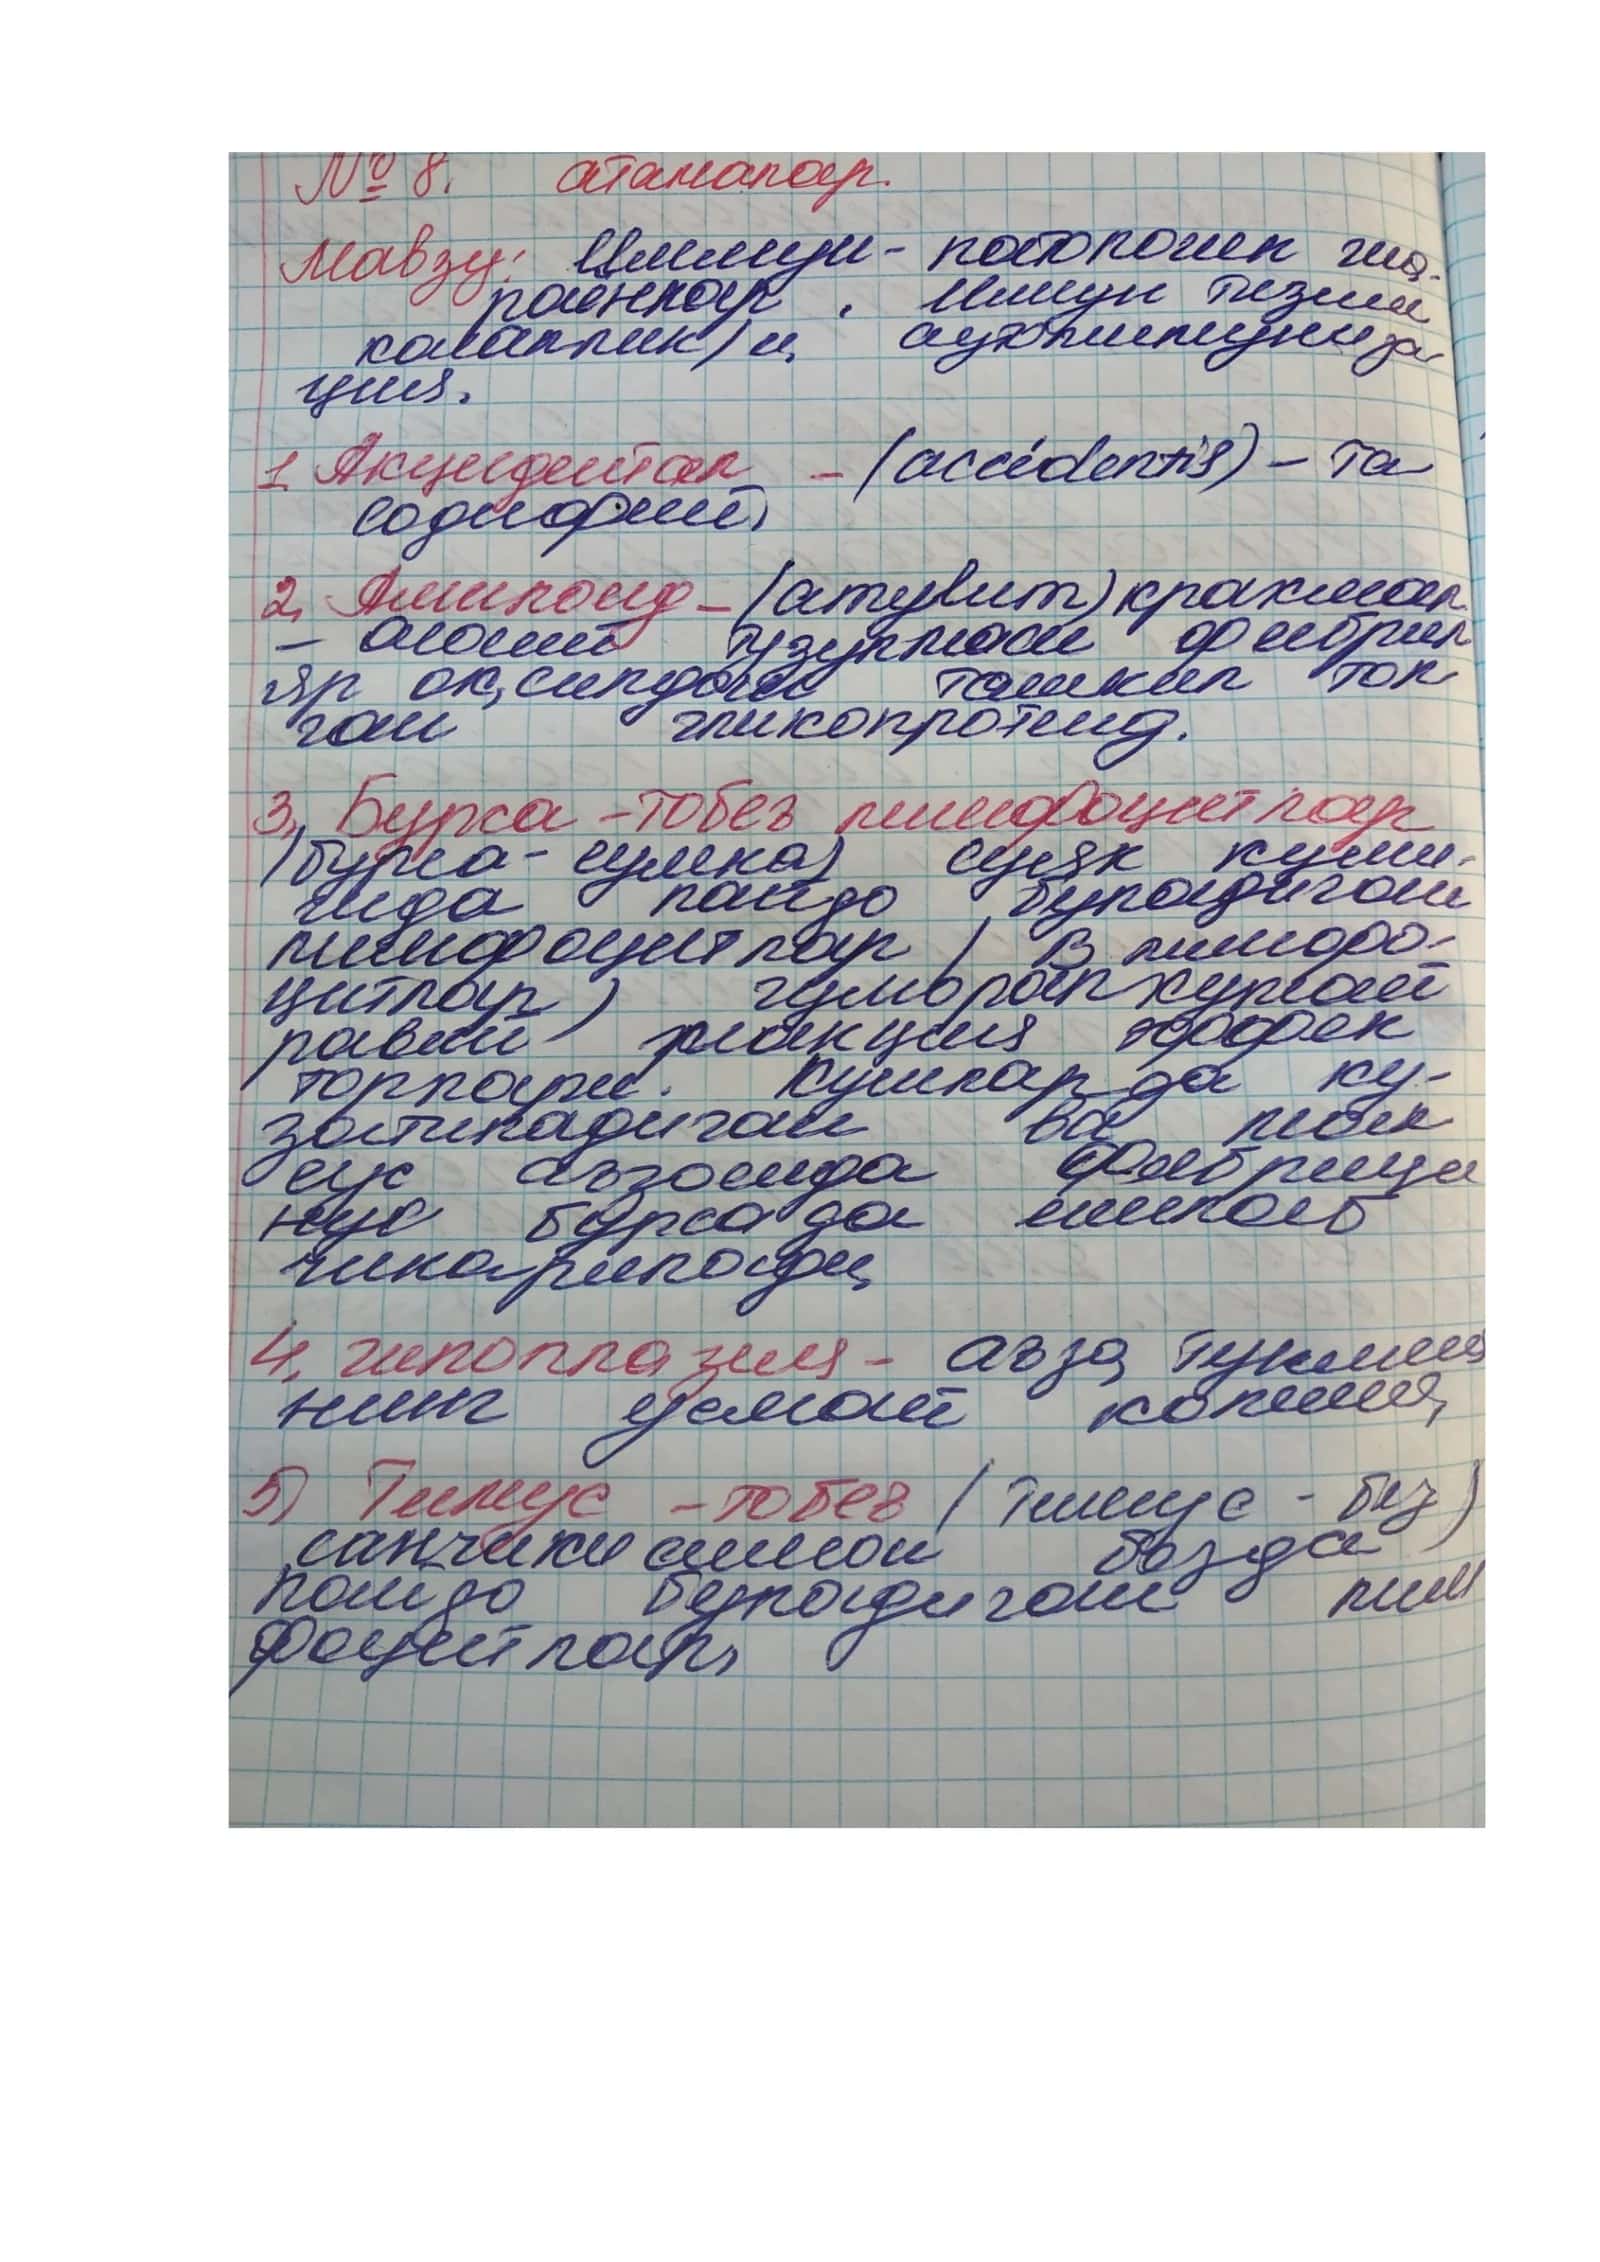 № 8. атамалар.
Мавзу: Иммун- патологик жа-
раёнлар. Иммун тизим
касаллиги, аутоиммуниза
ция.
1. Акцидентал - (accidentis) - та
содифий,
2. Амилоид - (amylum) крахмал
- асосий тузулмаси фибрил
яр оқсилдан ташкил топ
ган гликопротеид.
3. Бурса - тобез лимфоцитлар
(бурса- сумка) суяк куми-
гида пайдо буладиган
лимфоцитлар (В лимфо-
цитлар) гуморал хужай
равий реакция эффек
торлари. Кушларда ку-
затиладиган ва
сус аъзосида Фабрици
нус бурсада ишлаб
чикарилади,
4. гипоплазия - аъза, тукима
нинг усмай колиши,
5) Тимус - тобез (Тимус - без)
санчикисимон безда
пайдо буладиган лим
фоцитлар,